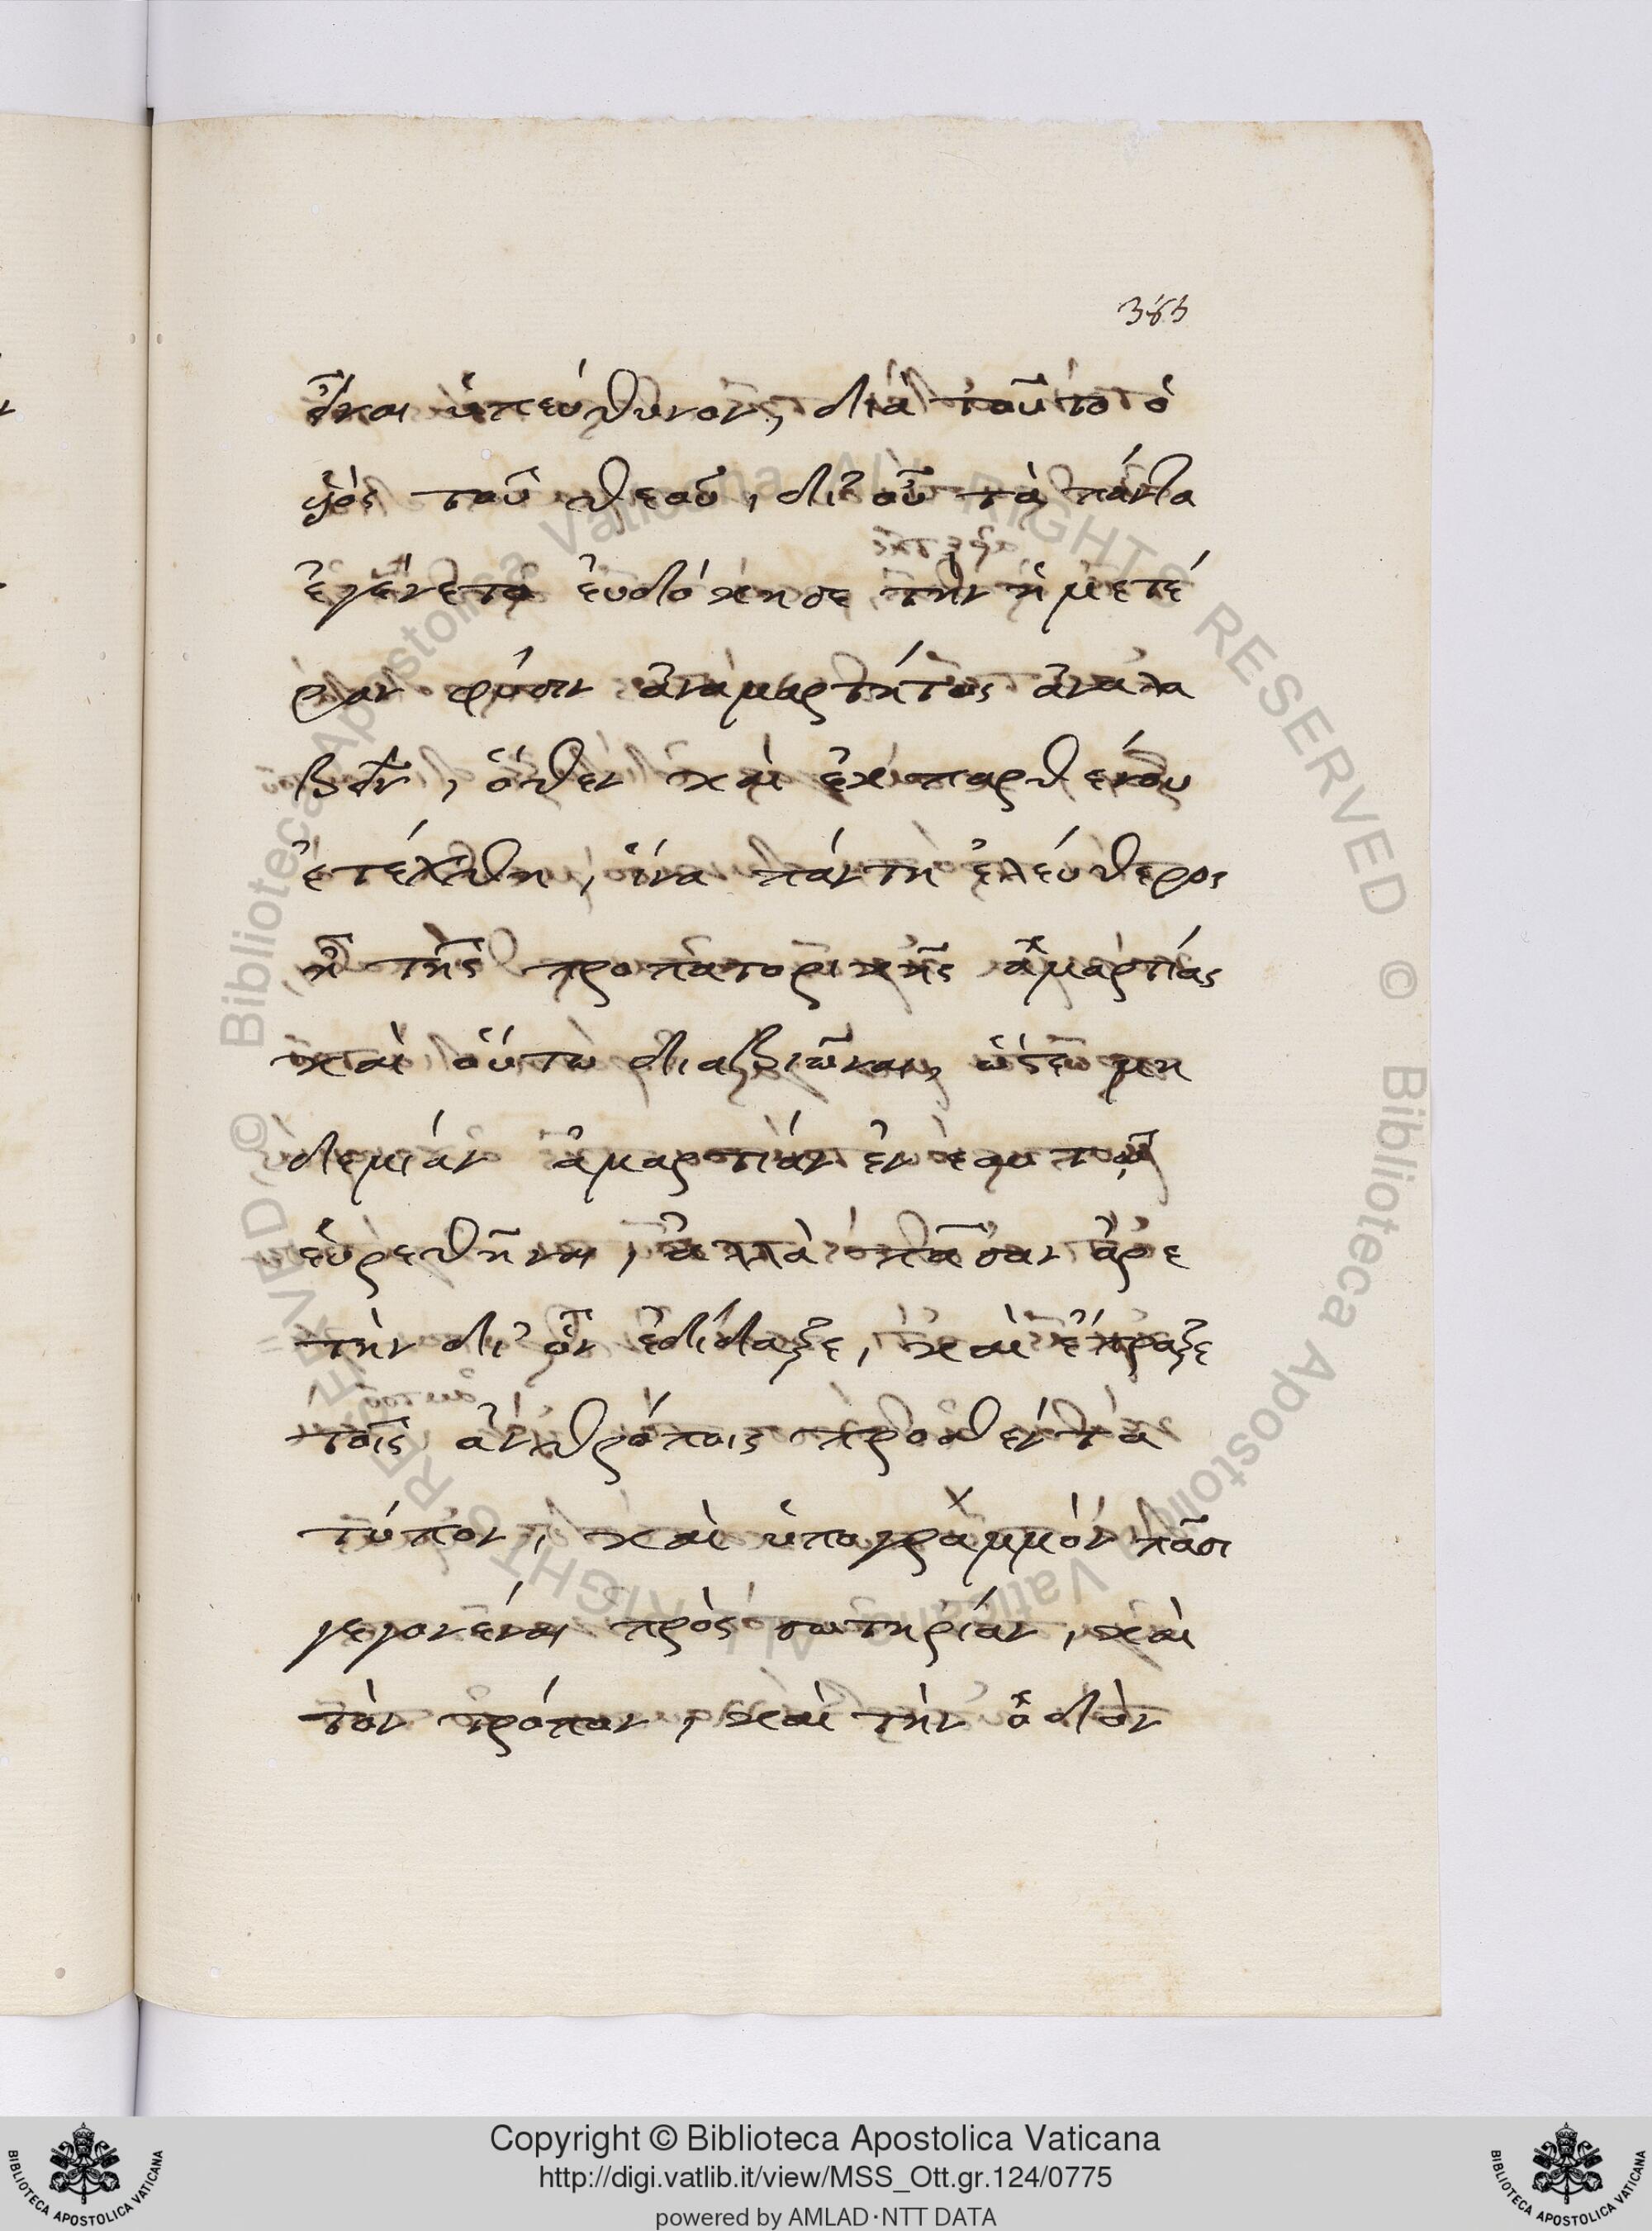 383
εἶναι ὑπεύθυνον, διὰ τοῦτο ὁ
υἱὸς τοῦ θεοῦ, δι' οὗ τὰ πάντα
ἐγένετο εὐδόκησε τὴν ἡμετέ
ραν φύσιν ἀναμαρτήτως ἀναλα
βεῖν, ὅθεν καὶ ἐκ παρθένου
ἐτέχθη, ἵνα πάντη ἐλεύθερος
ᾖ τῆς προπατορικῆς ἁμαρτίας
καὶ οὕτω διαβιῶναι, ὥστε μη
δεμίαν ἁμαρτίαν ἐν ἑαυτῷ
εὑρεθῆναι, ἀλλὰ πᾶσαν ἀρε
τὴν δι' ὧν ἐδίδαξε, καὶ ἔπραξε
τοῖς ἀνθρώποις προθέντα
τύπον, καὶ ὑπογραμμὸν πᾶσι
γεγονέναι πρὸς σωτηρίαν, καὶ
τὸν τρόπον, καὶ τὴν ὁδὸν
© Biblioteca Apostolica Vaticana ALL RIGHTS RESERVED © Biblioteca Apostolica Vaticana ALL RIGHTS RESERVED
BIBLIOTECA APOSTOLICA VATICANA
Copyright © Biblioteca Apostolica Vaticana
http://digi.vatlib.it/view/MSS_Ott.gr.124/0775
powered by AMLAD·NTT DATA
BIBLIOTECA APOSTOLICA VATICANA